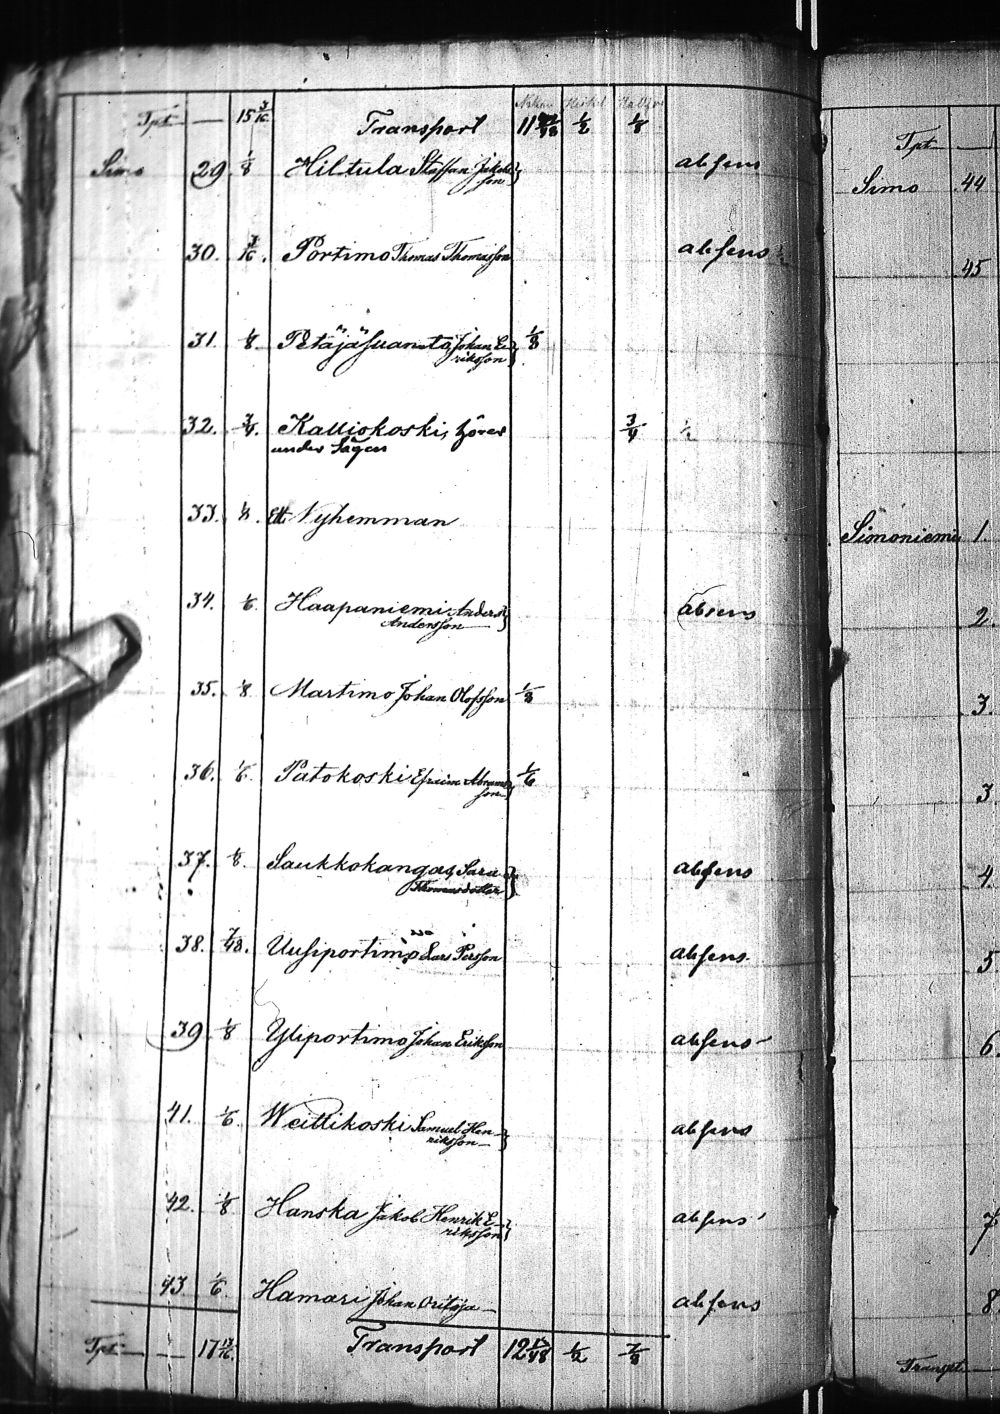 Tpt — 15 3/16 Transport 11 1/2 1/8
Simo 29 1/8 Hiltula Staffan Jakobs
son absens
30. 3/16. Portimo Thomas Thomasson absens
31. 1/8 Petäjäsuanto Johan E
riksson 1/8
32. 3/4. Kalliokoski, hörer 3/4 1/2
under Sågen
33. Ett Nyhemman
34. 1/6. Haapaniemi Anders absens
Andersson
35. 1/8 Martimo Johan Olofsson 1/8
36. 1/6. Patokoski Efraim Abrams 1/6
son
37. 1/8. Saukkokangas Sara absens
Thomasdotter
38. 7/48. Uusiportimo Lars Persson absens
39 1/8 Yliportimo Johan Eriksson absens
41. 1/6. Weittikoski Samuel Hen-
riksson absens
42. 1/8 Hanska Jakob Henrik E-
riksson absens
43 1/6. Hamari Johan absens
Tpt — 17 13/16. Transport 12 1/2 7/8
Tpt —
Simo 44
45
Simoniemi 1.
2.
3.
3.
4.
5.
6.
7
8
Transpt —